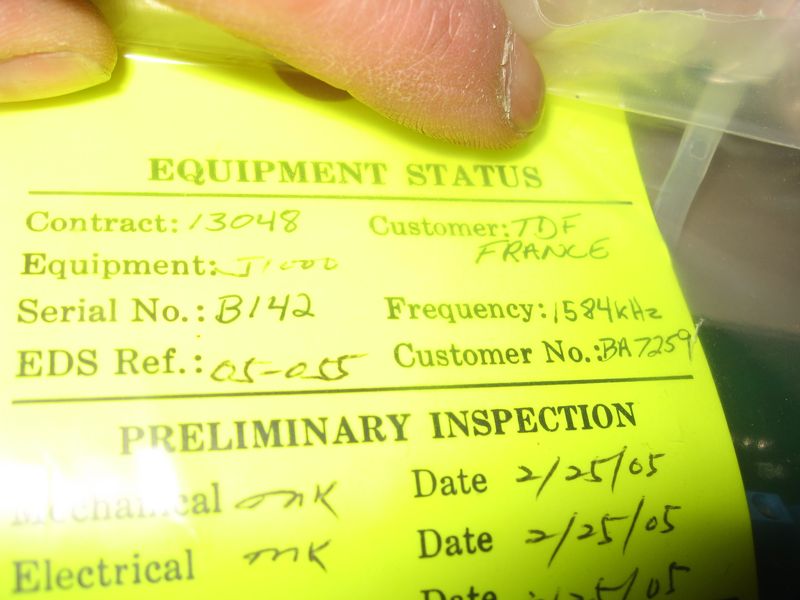 EQUIPMENT STATUS
Contract: 13048 Customer: TDF
FRANCE
Equipment: J1000
Serial No.: B142 Frequency: 1584kHz
EDS Ref.: 05-055 Customer No.: BA7259
PRELIMINARY INSPECTION
Mechanical MK Date 2/25/05
Electrical MK Date 2/25/05
Date 2/25/05